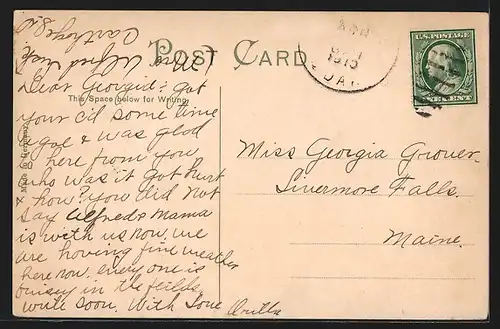 POST CARD
This Space below for Writing
Made in Germany
1913
U.S. POSTAGE
Dear Georgid; got
your c'd some time
ago & was glad
to here from you
who was it got hurt
& how? you did not
say Alfred & Mama
is with us now. we
are having find weather
here now. every one is
buisey in the feilds.
write soon. With Love
Miss Georgia Grover
Livermore Falls.
Maine.